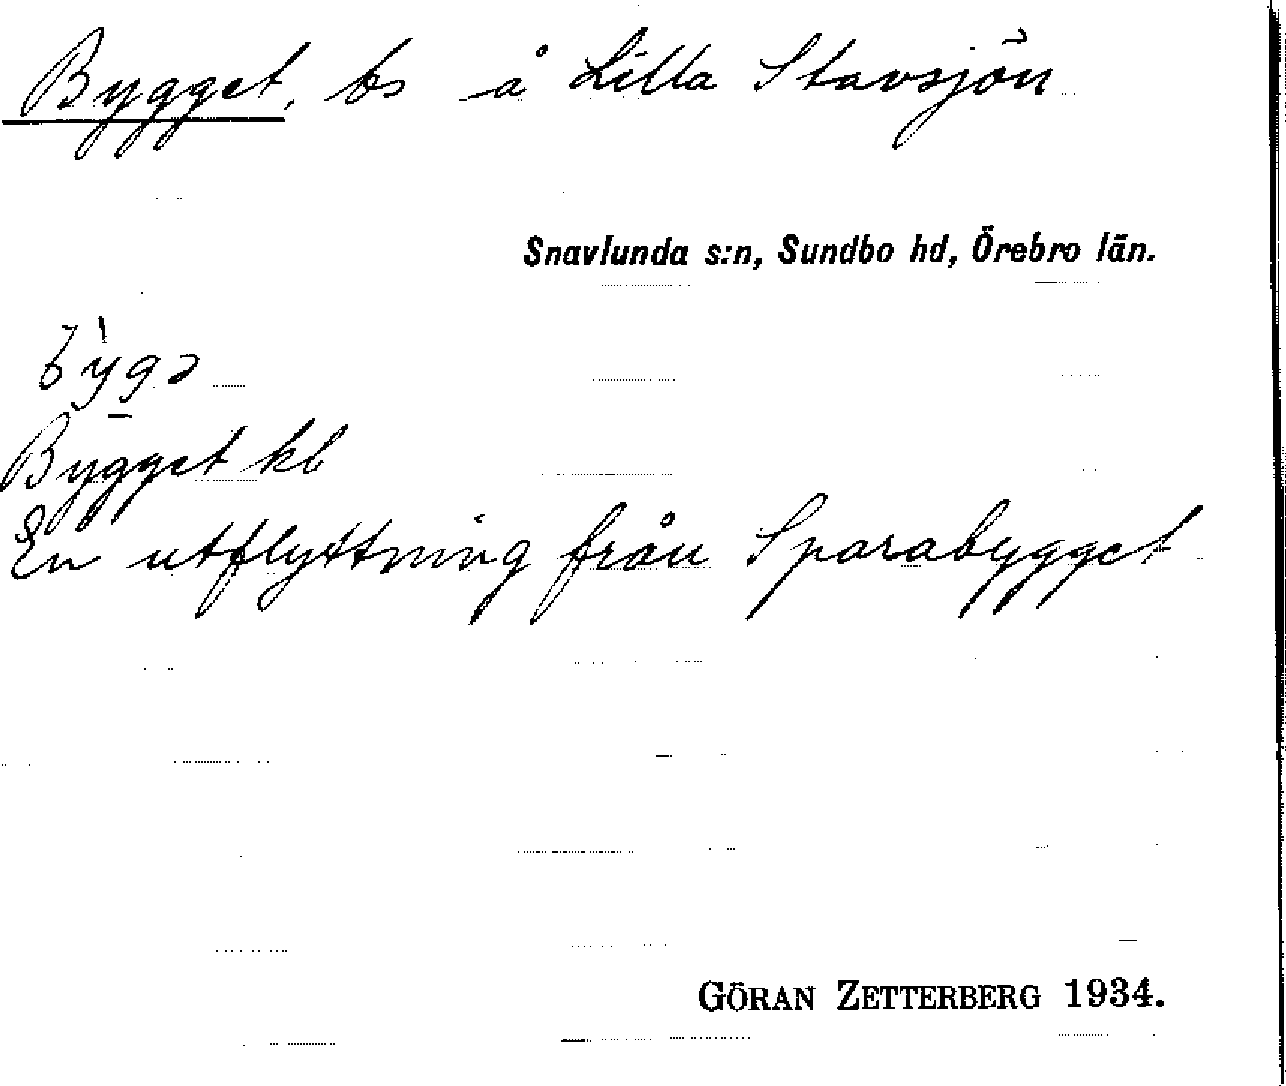 Bygget, bs å Lilla Stavsjön
Snavlunda s:n, Sundbo hd, Örebro län.
by̍g̠ə
Bygget kb
En utflyttning från Sparabygget
GÖRAN ZETTERBERG 1934.